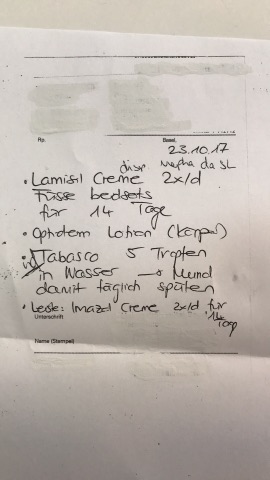 Rp.
Basel,
23.10.17
disp
Mepha da SL
• Lamisil Creme 2x/d
Füsse bedseits
für 14 Tage
• Optiderm Lotion (Körper)
• Tabasco 5 Tropfen
in Wasser → Mund
damit täglich spülen
• Leiste: Imazol Creme 2x/d für
14 Tage
Unterschrift
Name (Stempel)